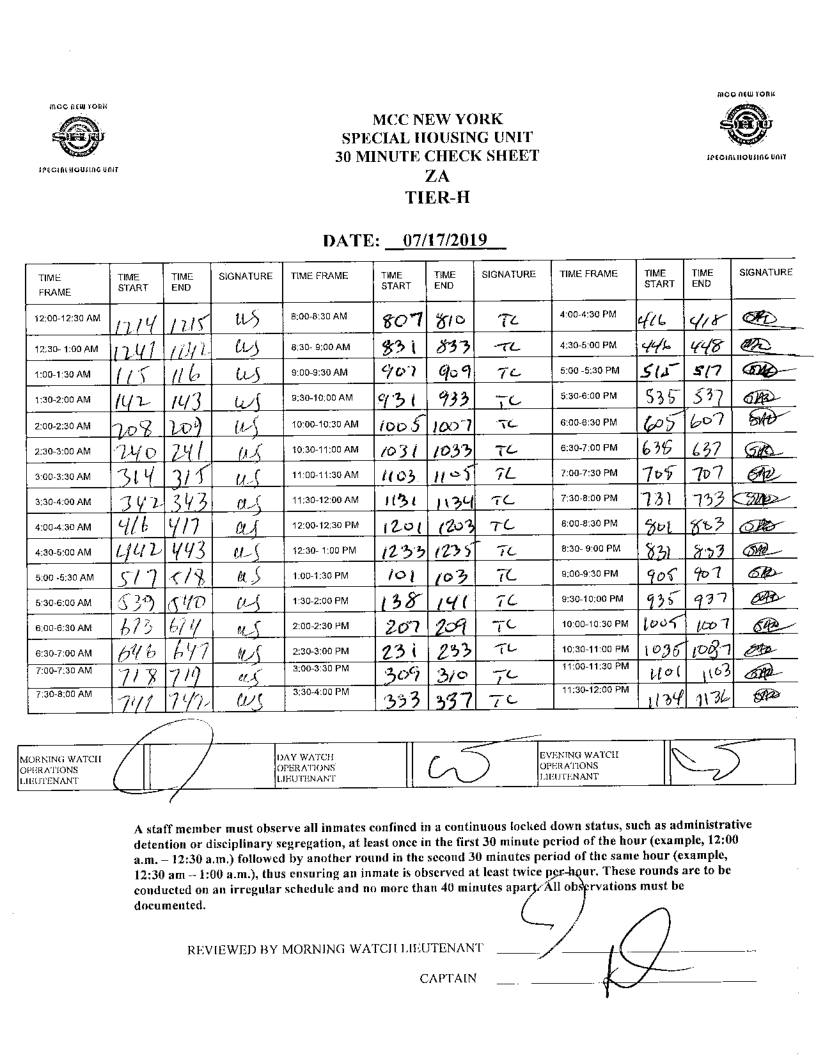 MCC NEW YORK
SHU
SPECIAL HOUSING UNIT
MCC NEW YORK
SHU
SPECIAL HOUSING UNIT
MCC NEW YORK
SPECIAL HOUSING UNIT
30 MINUTE CHECK SHEET
ZA
TIER-H
DATE: 07/17/2019
TIME FRAME TIME START TIME END SIGNATURE TIME FRAME TIME START TIME END SIGNATURE TIME FRAME TIME START TIME END SIGNATURE
12:00-12:30 AM 1214 1215 8:00-8:30 AM 807 810 TC 4:00-4:30 PM 416 418
12:30- 1:00 AM 1241 1242 8:30- 9:00 AM 831 833 TC 4:30-5:00 PM 446 448
1:00-1:30 AM 115 116 9:00-9:30 AM 907 909 TC 5:00 -5:30 PM 515 517
1:30-2:00 AM 142 143 9:30-10:00 AM 931 933 TC 5:30-6:00 PM 535 537
2:00-2:30 AM 208 209 10:00-10:30 AM 1005 1007 TC 6:00-6:30 PM 605 607
2:30-3:00 AM 240 241 10:30-11:00 AM 1031 1033 TC 6:30-7:00 PM 635 637
3:00-3:30 AM 314 315 11:00-11:30 AM 1103 1105 TC 7:00-7:30 PM 705 707
3:30-4:00 AM 342 343 11:30-12:00 AM 1131 1134 TC 7:30-8:00 PM 731 733
4:00-4:30 AM 416 417 12:00-12:30 PM 1201 1203 TC 8:00-8:30 PM 801 803
4:30-5:00 AM 442 443 12:30- 1:00 PM 1233 1235 TC 8:30- 9:00 PM 831 833
5:00 -5:30 AM 517 518 1:00-1:30 PM 101 103 TC 9:00-9:30 PM 905 907
5:30-6:00 AM 539 540 1:30-2:00 PM 138 141 TC 9:30-10:00 PM 935 937
6:00-6:30 AM 613 614 2:00-2:30 PM 207 209 TC 10:00-10:30 PM 1005 1007
6:30-7:00 AM 646 647 2:30-3:00 PM 231 233 TC 10:30-11:00 PM 1035 1037
7:00-7:30 AM 718 719 3:00-3:30 PM 309 310 TC 11:00-11:30 PM 1101 1103
7:30-8:00 AM 741 742 3:30-4:00 PM 333 337 TC 11:30-12:00 PM 1134 1136
MORNING WATCH OPERATIONS LIEUTENANT DAY WATCH OPERATIONS LIEUTENANT EVENING WATCH OPERATIONS LIEUTENANT
A staff member must observe all inmates confined in a continuous locked down status, such as administrative
detention or disciplinary segregation, at least once in the first 30 minute period of the hour (example, 12:00
a.m. – 12:30 a.m.) followed by another round in the second 30 minutes period of the same hour (example,
12:30 am – 1:00 a.m.), thus ensuring an inmate is observed at least twice per-hour. These rounds are to be
conducted on an irregular schedule and no more than 40 minutes apart. All observations must be
documented.
REVIEWED BY MORNING WATCH LIEUTENANT
CAPTAIN